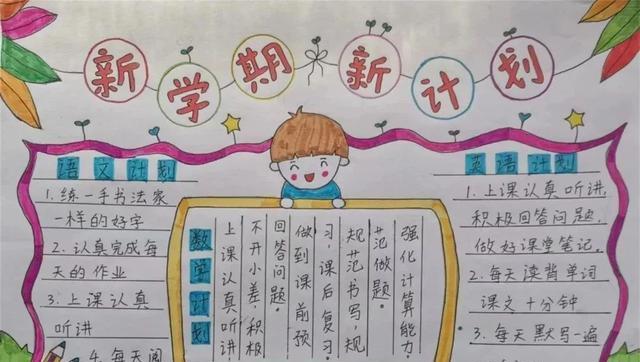 新学期新计划
语文计划
1. 练一手书法家
一样的好字
2. 认真完成每
天的作业
3. 上课认真
听讲
4. 每天阅
数学计划
上课认真听讲,
不开小差,积极
回答问题。
做到课前预
习,课后复习。
规范书写,规
范做题。
强化计算能力。
英语计划
1. 上课认真听讲,
积极回答问题,
做好课堂笔记。
2. 每天读背单词
课文十分钟
3. 每天默写一遍